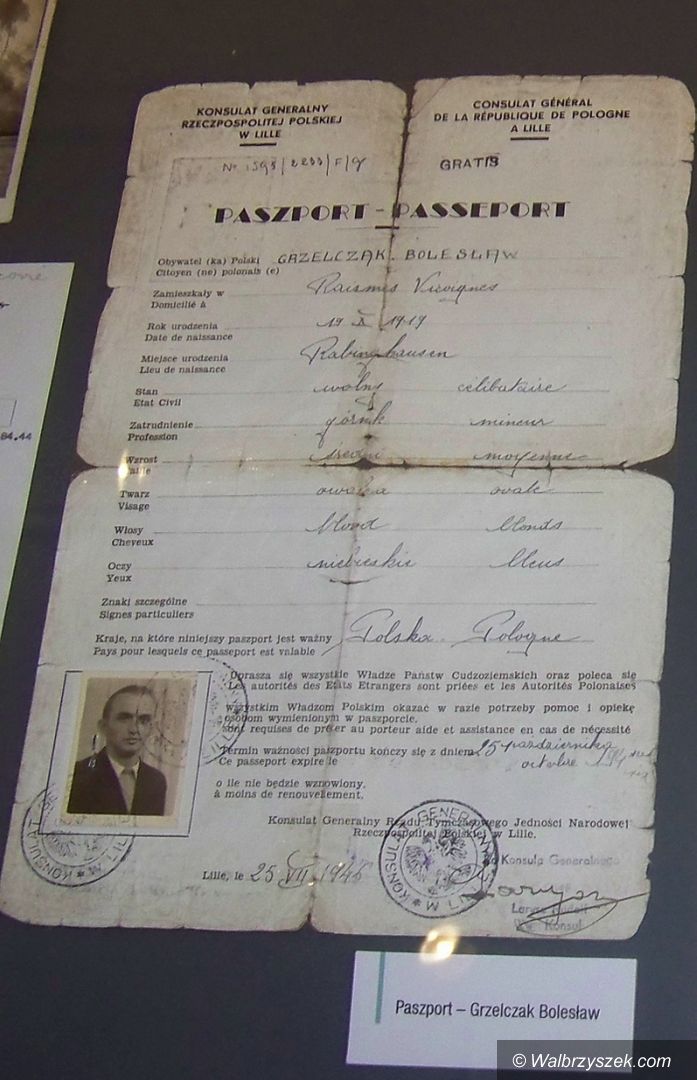 KONSULAT GENERALNY
RZECZPOSPOLITEJ POLSKIEJ
W LILLE
CONSULAT GÉNÉRAL
DE LA RÉPUBLIQUE DE POLOGNE
A LILLE
No
GRATIS
PASZPORT - PASSEPORT
Obywatel (ka) Polski GRZELCZAK BOLESŁAW
Citoyen (ne) polonais (e)
Zamieszkały w Raismes Vicoignes
Domicilié à
Rok urodzenia 19 X 1919
Date de naissance
Miejsce urodzenia
Lieu de naissance
Stan wolny célibataire
Etat Civil
Zatrudnienie górnik mineur
Profession
Wzrost średni moyenne
Taille
Twarz owalna ovale
Visage
Włosy blond blonds
Cheveux
Oczy niebieskie bleus
Yeux
Znaki szczególne
Signes particuliers
Kraje, na które niniejszy paszport jest ważny Polska - Pologne
Pays pour lesquels ce passeport est valable
Uprasza się wszystkie Władze Państw Cudzoziemskich oraz poleca się
Les autorités des Etats Etrangers sont priées et les Autorités Polonaises
wszystkim Władzom Polskim okazać w razie potrzeby pomoc i opiekę
osobom wymienionym w paszporcie.
sont requises de prêter au porteur aide et assistance en cas de nécessité
Termin ważności paszportu kończy się z dniem 25 października
Ce passeport expire le octobre
o ile nie będzie wznowiony.
à moins de renouvellement.
Konsulat Generalny Rządu Tymczasowego Jedności Narodowej
Rzeczpospolitej Polskiej w Lille.
Lille, le 25 VII 1945
Konsula Generalnego
Konsul
Paszport – Grzelczak Bolesław
© Walbrzyszek.com
84.44